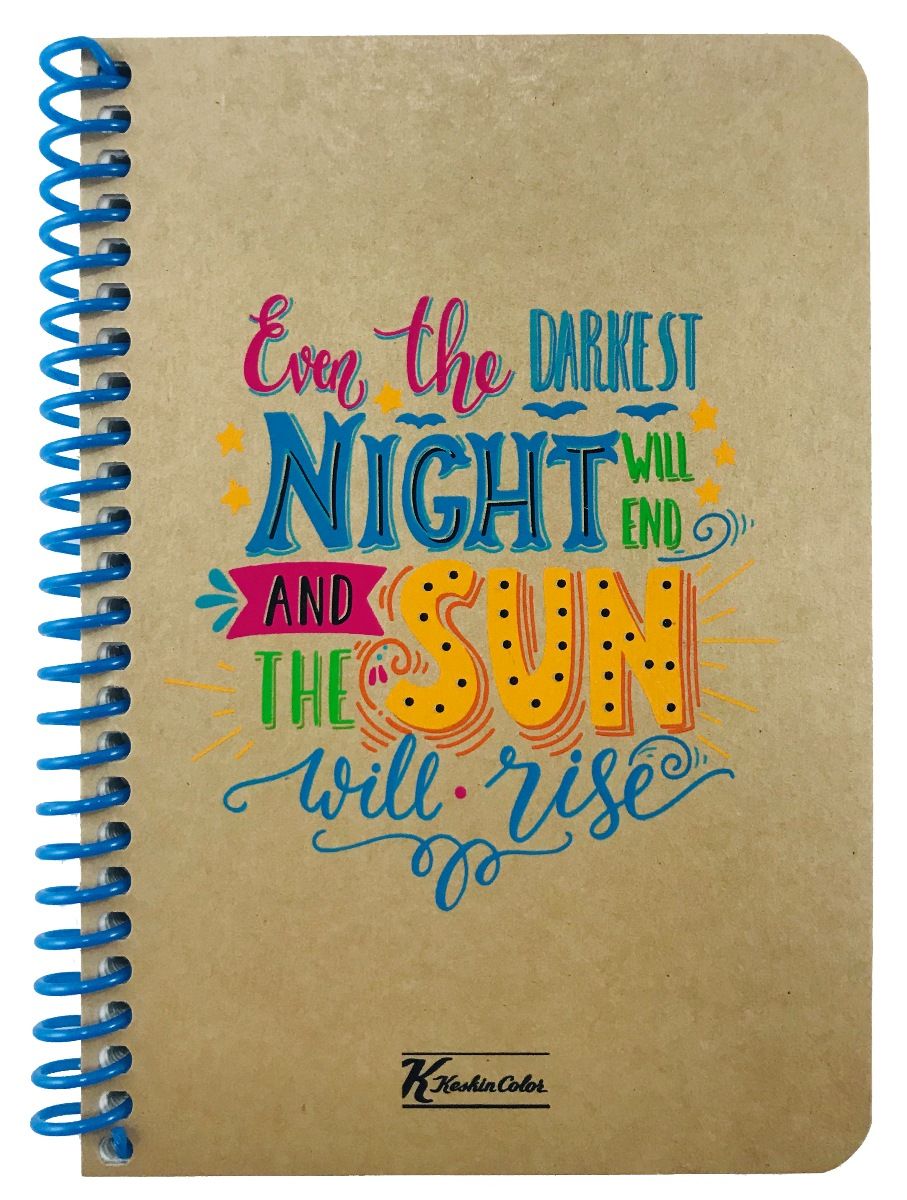 Even the DARKEST
NIGHT WILL
END
AND
THE SUN
will · rise
K Keskin Color